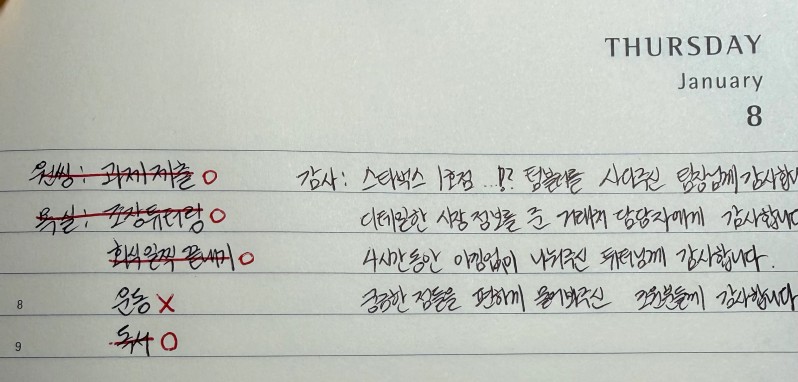 THURSDAY
January
8
원씽: 과제제출 O
감사: 스타벅스 1호점 ...!? 텀블러를 사다주신 팀장님께 감사합니
욕실: 조장튜터링 O
디테일한 시장 정보를 준 거래처 담당자에게 감사합니다
회식 일찍 끝내기 O
4시간동안 아낌없이 나눠주신 튜터님께 감사합니다.
8 운동 X
궁금한 점들을 편하게 물어봐주신 조원분들께 감사합니다
9 독서 O